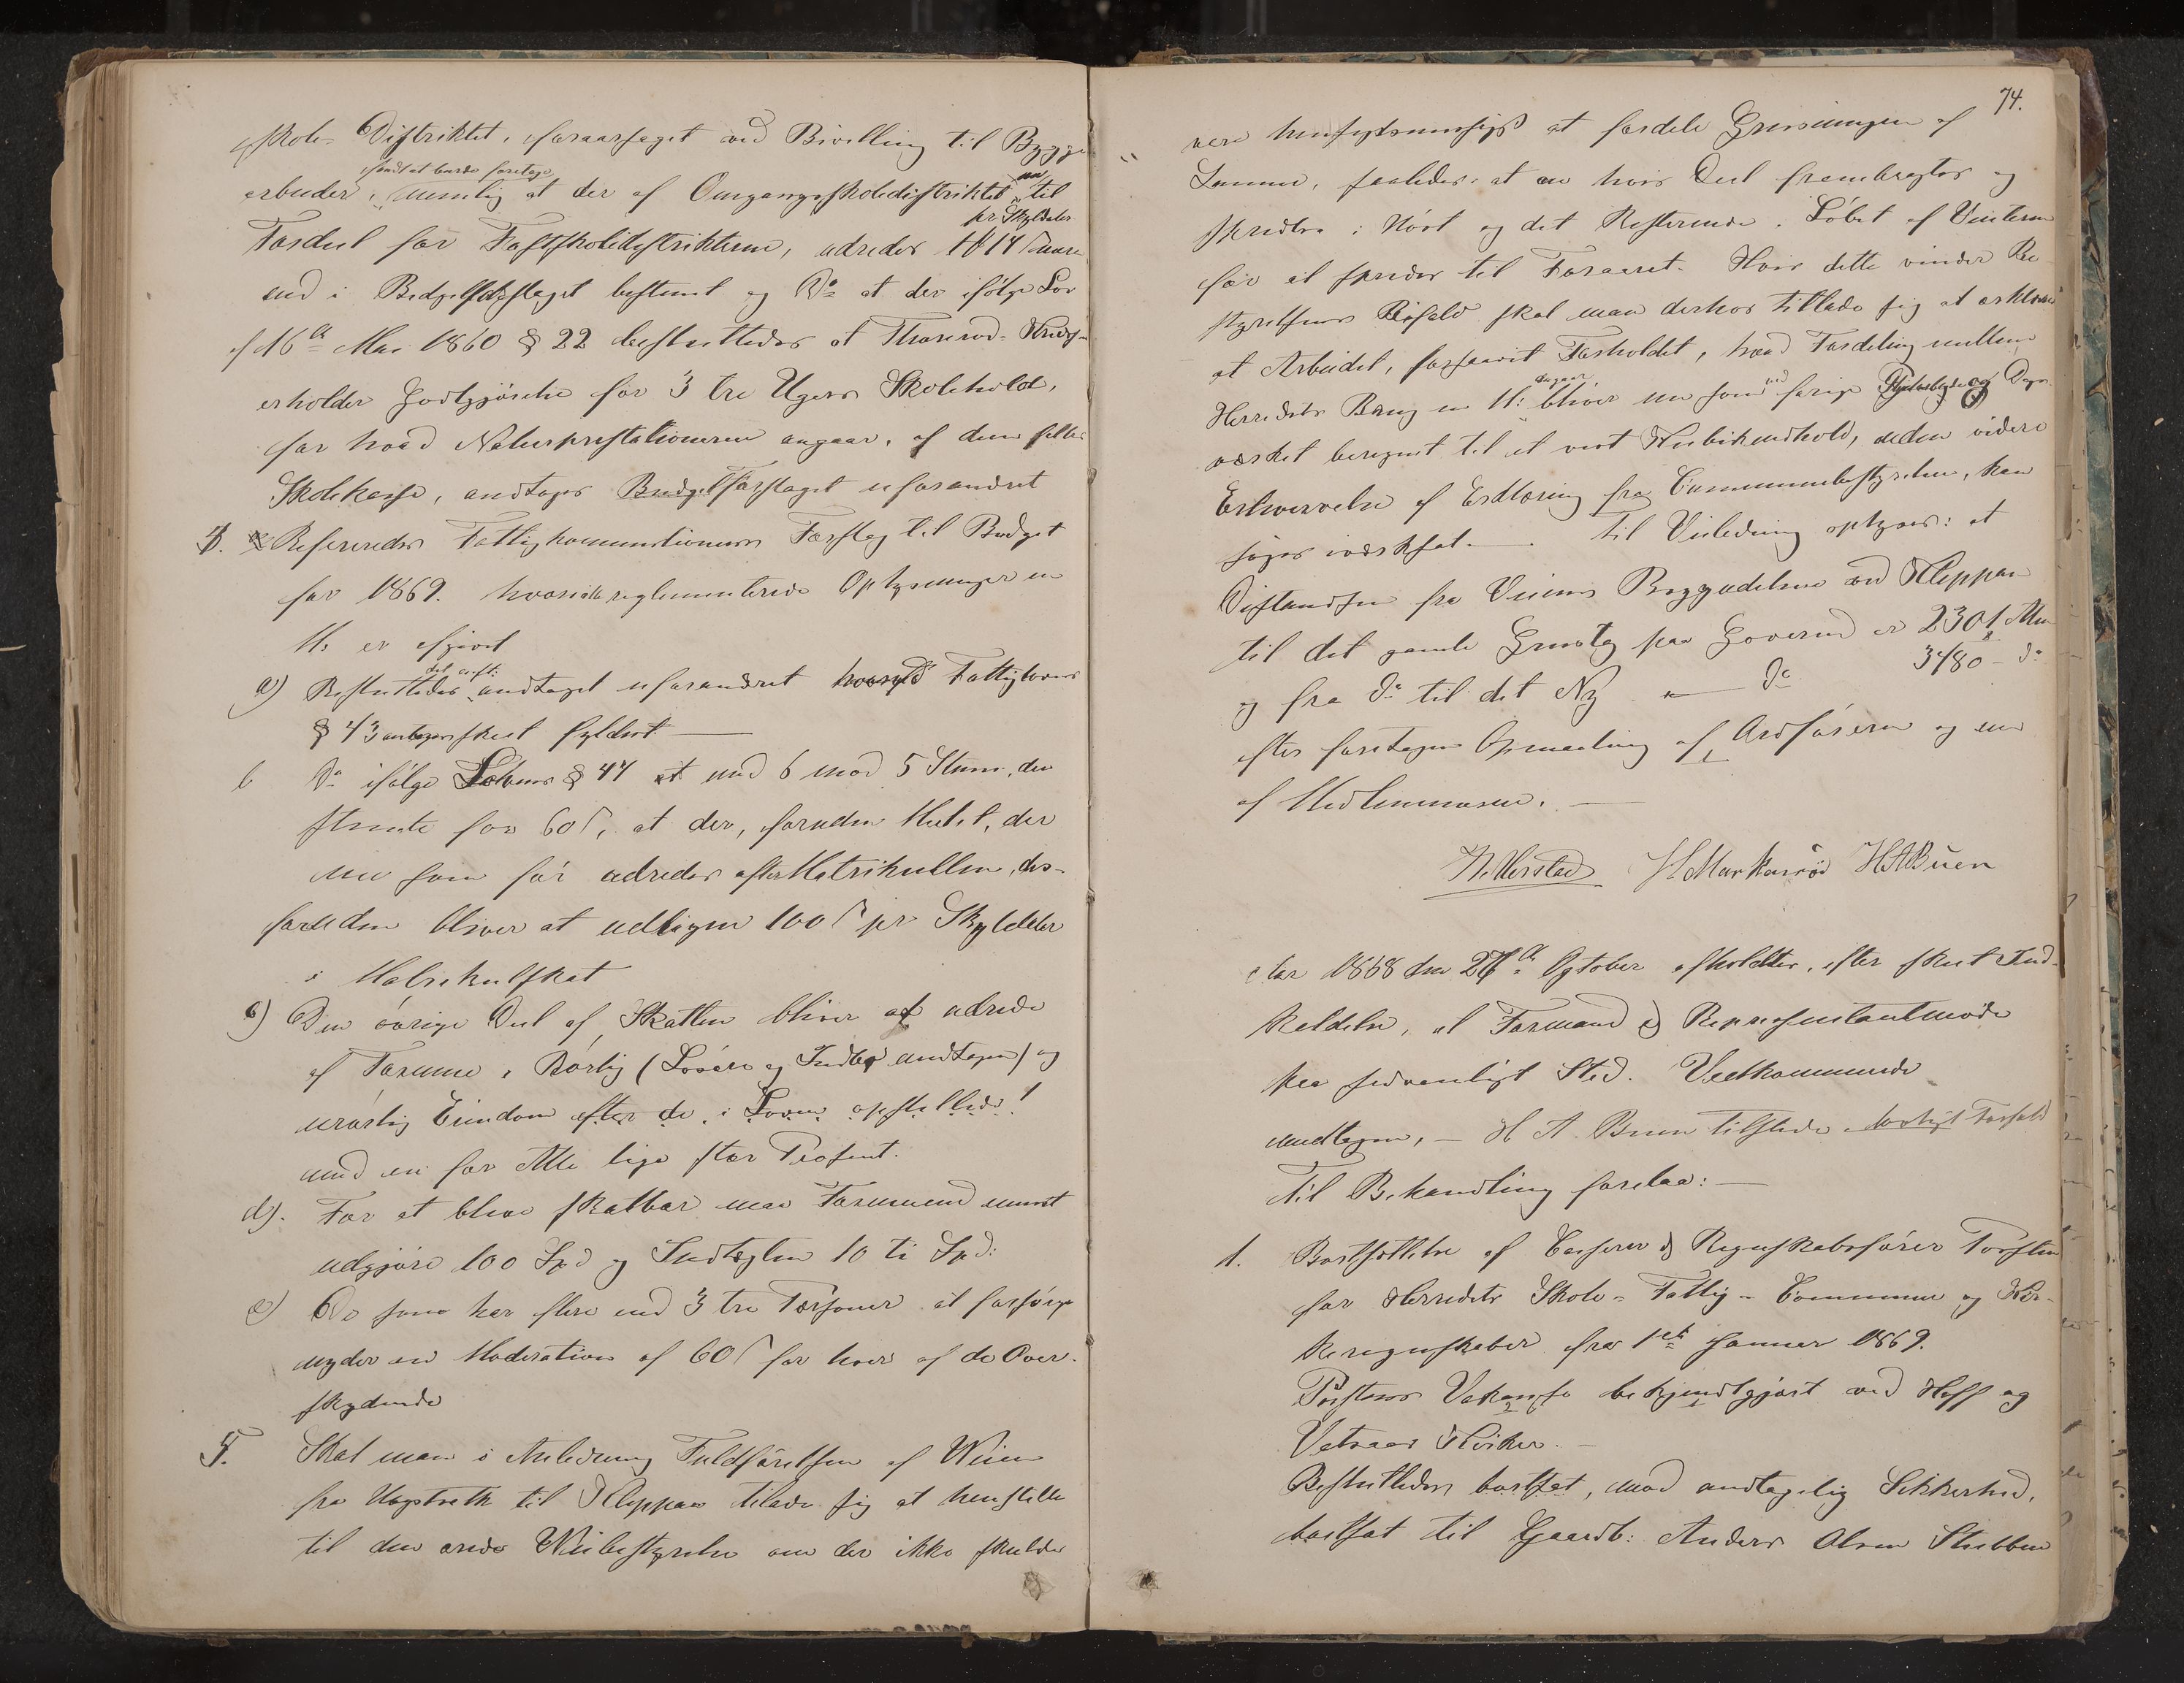 Skole-Distriktet, foraarsaget ved Bivilling til Bygge-
fandt at burde foretage
arbeider, nemlig at der af Omgangsskoledistriktet nu til
Fordeel for Fastskoledistrikterne, udredes 1 # 14 s pr Skylddaler mere
end i Budgetforslaget bestemt og Do at der ifølge Lov
af 16de Mai 1860 § 22 besluttedes at Thorerød-Kreds
erholder Godtgjørelse for 3 tre Ugers Skolehold,
for hvad Naturprestationerne angaar, af den fælles
Skolekasse, andtages Budgetforslaget uforandret
4. Refereredes Fattigkommisionens Forslag til Budget
for 1869. hvori de reglementerede Oplysninger m
M. er afgivet
a) Besluttedes det andtaget uforandret hvorved Fattiglovens
§ 43 antages skeet fyldest —
b Do ifølge Lovens § 44 at med 6 mod 5 Stem., der
stemte for 60 s, at der, foruden Mulct, der
nu som før udredes efter Matrikullen, des-
foruden bliver at udligne 100 s pr Skylddaler
i Matrikulskat
c) Den øvrige Deel af Skatten bliver at udrede
af Formue, Rørlig (Løsøre og Indbo undtagen) og
urørlig Eiendom efter de i Loven opstillede
med en for Alle lige stor Prosent.
d). For at blive skatbar maa Formuen mindst
udgjøre 100 Spd og Indtægten 10 ti Spd:
e) De som har flere end 3 tre Personer at forsørge
nyder en Moderation af 60 s for hver af de Over-
skydende
5. Skal man i Anledning Fuldførelsen af Veien
fra Hogstveth til Kleppan tillade sig at henstille
til den ærede Veibestyrelse om der ikke skulde
74.
være hensigtsmæssigt at fordele Grusningen af
Samme, saaledes: at en hvis Deel frembragtes og
spredtes i Høst og det Resterende i Løbet af Vinteren
for at spredes til Foraaret. Hvis dette vinder Be-
styrelsens Bifald skal man derhos tillade sig at erklære
at Arbeidet, forsaavidt Forholdet, hvad Fordeling mellem
Herredets Brug m M: angaar bliver nu som ved forige og Dags-
værket beregnet til et vist Kubikindhold, uden videre
Erhvervelse af Erklæring fra Communebestyrelsen, kan
søges iværksat. — Til Veiledning oplyses: at
Distandsen fra Veiens Begyndelse ved Kleppan
til det gamle Grustag paa Goverud er 2301 Alen
og fra do til det Ny — do 3480 – do
efter foretagen Opmaaling af Ordføreren og en
af Medlemmerne. —
N. Uerstad H Markusrød H A Buen
Aar 1868 den 27de October afholdtes, efter skeet Ind-
kaldelse, et Formand & Representantmøde
paa sedvanligt Sted. Vedkommende
mødtes, — H A. Buen tilstede Forfald
Til Behandling forelaa: —
1. Bortsættelse af Casserer & Regnskabsfører Posten
for Herredets Skole- Fattig- Commune og Kir-
keregnskaber fra 1ste Januar 1869.
Postens Vakanse bekjendtgjort ved Hoff og
Vivestad Kirker. —
Besluttedes bortsat, mod andtagelig Sikkerhed,
bortsat til Gaardb: Anders Olsen Stubben